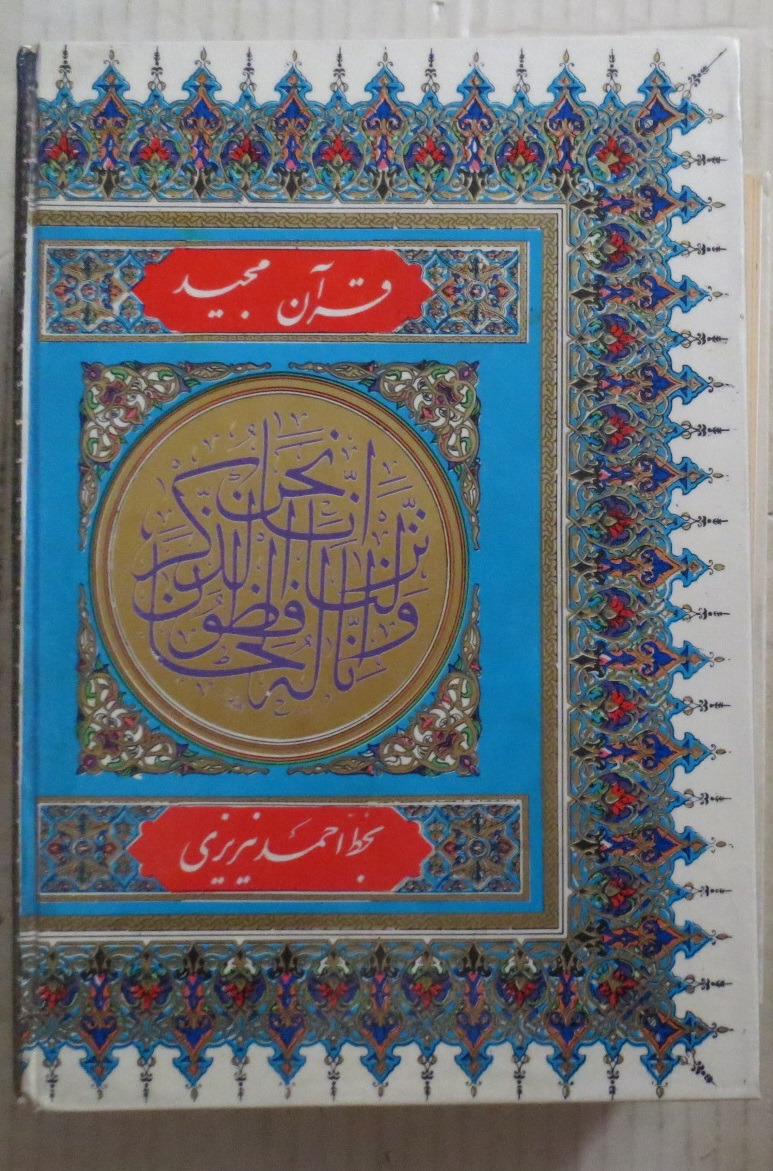 قرآن مجید
انا نحن نزلنا الذکر وانا له لحافظون
بخط احمد نیریزی